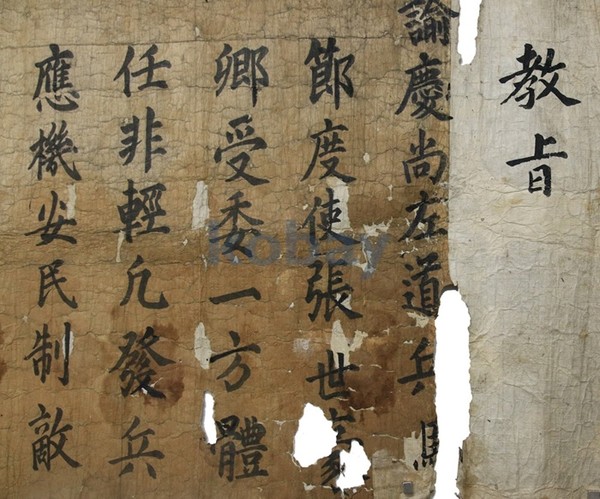 教旨
諭慶尚左道兵馬
節度使張世
卿受委一方體
任非輕凡發兵
應機安民制敵
kobay